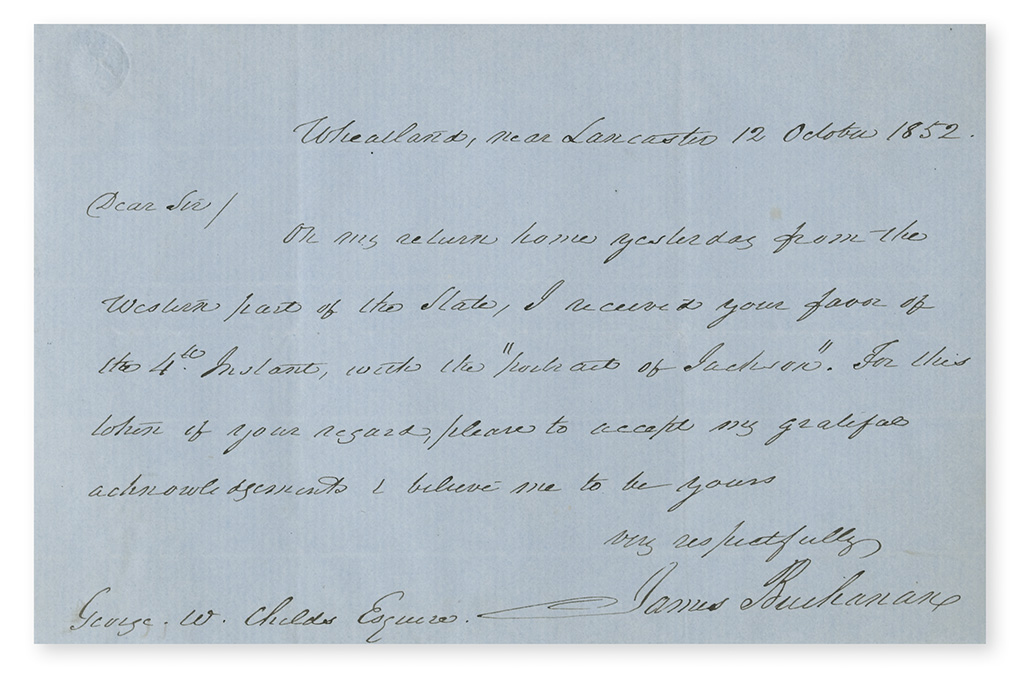 Wheatland, near Lancaster 12 October 1852.
Dear Sir/
On my return home yesterday from the
Western part of the State, I received your favor of
the 4th. Instant, with the "portrait of Jackson". For this
token of your regard, please to accept my grateful
acknowledgements & believe me to be yours
very respectfully
James Buchanan
George. W. Childs Esquire.